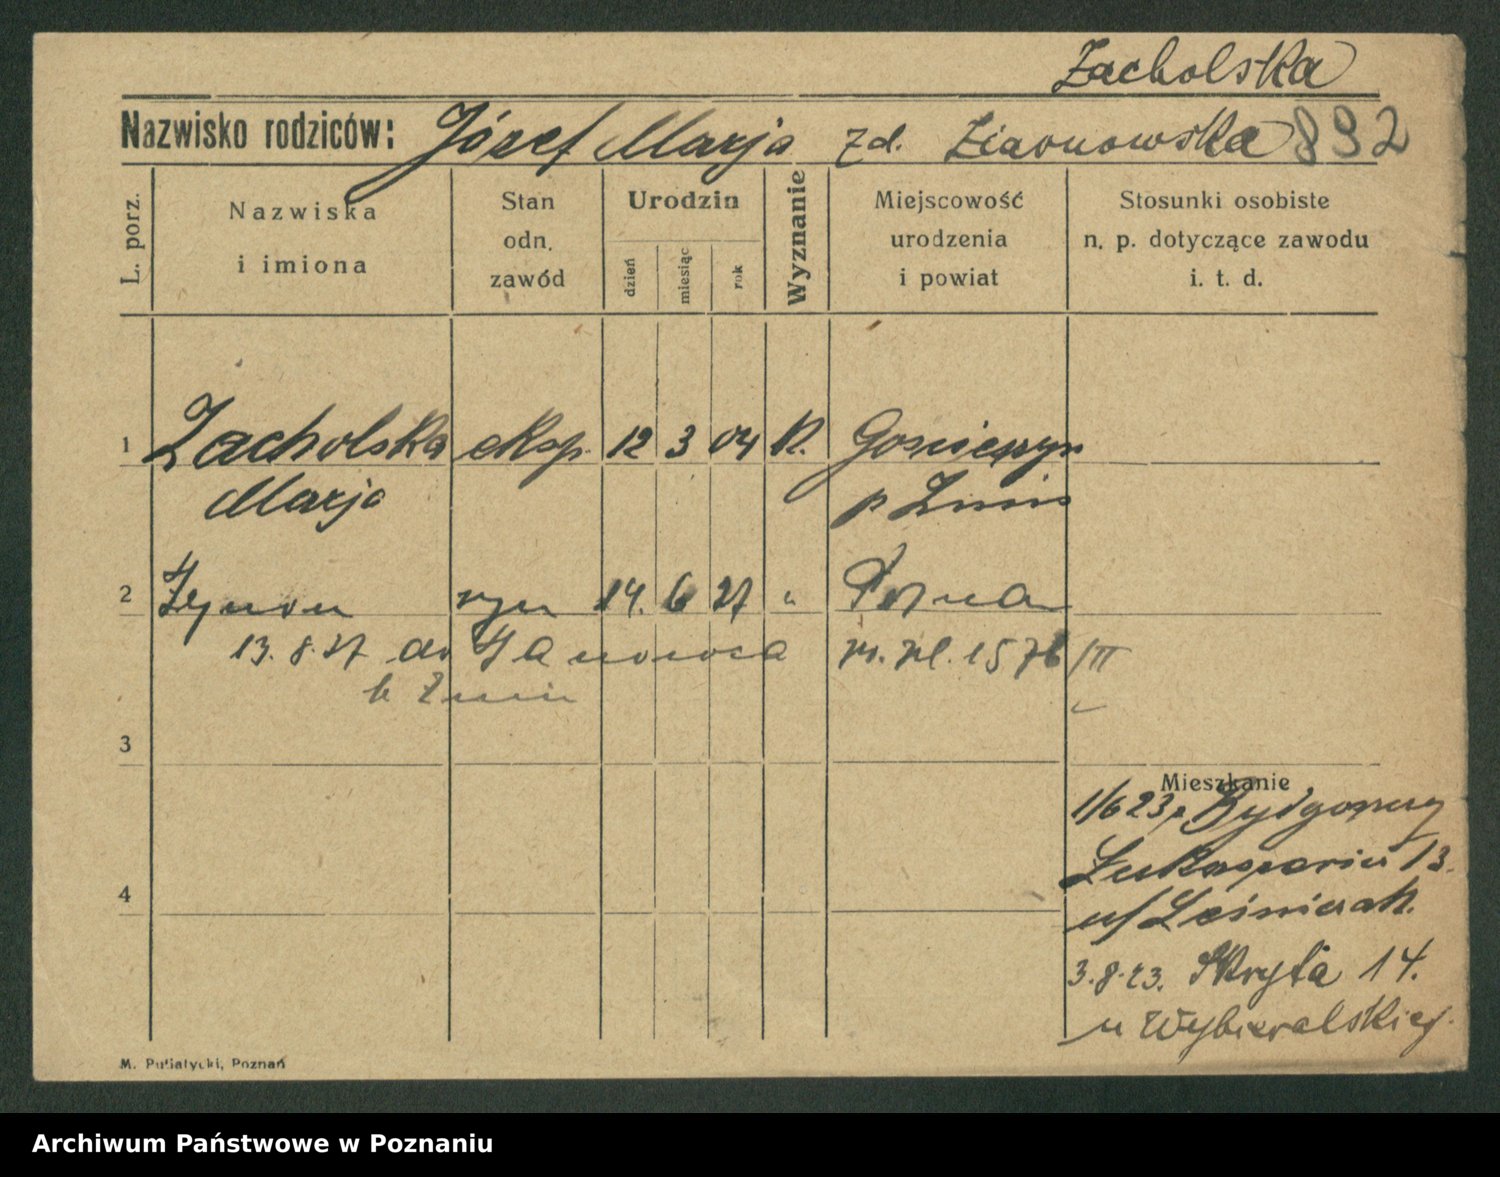 Zacholska
Nazwisko rodziców: Józef Marja zd. Ziarnowska 892
L. porz.
Nazwiska
i imiona
Stan
odn.
zawód
Urodzin
dzień
miesiąc
rok
Wyznanie
Miejscowość
urodzenia
i powiat
Stosunki osobiste
n. p. dotyczące zawodu
i. t. d.
1 Zacholska eksp. 12 3 04 k. Gościeszyn
Marja p Żnin
2 Zenon syn 14. 6 27 " Pozna
13.8.27 do Janowca 1576/III
b Żnin
3
Mieszkanie
1/6 23 z Bydgoszczy
Łukaszewicza 13.
u/ Leśniczak.
4
3.8.23. Skryta 14.
u Wybieralskiej.
M. Putiatycki, Poznań
Archiwum Państwowe w Poznaniu